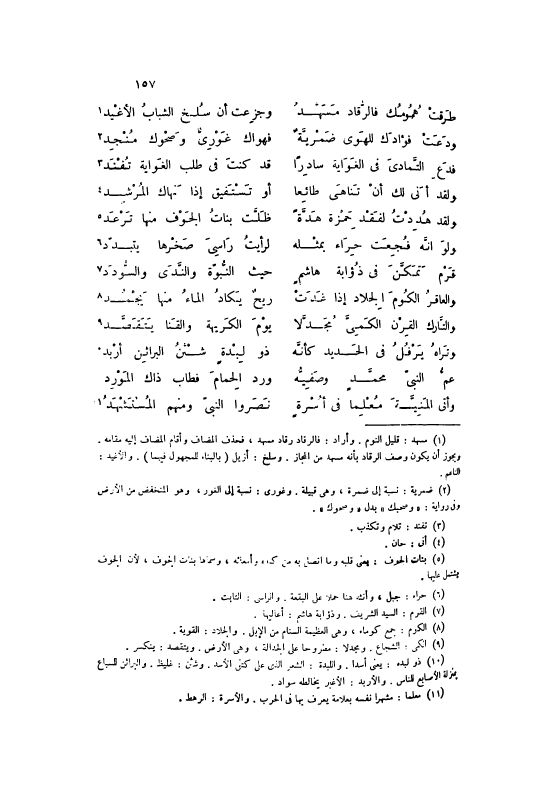 ١٥٧
طرقتْ همومُك فالرُّقاد مسَهّدُ وجزعت أن سُلخ الشبابُ الأغيدُ ١
ودعتْ فؤادَك للهوى ضَمْريةٌ فهواك غَوْرىٌّ وصحْوك مُنْجِدُ ٢
فدعِ التَّمادىَ فى الغَواية سادرًا قد كنتَ فى طلب الغَواية تُفْنَدُ ٣
ولقد أنَى لك أنْ تَناهَى طائِعا أو تَسْتفيق إذا نَهاك المُرْشِدُ ٤
ولقد هُدِدْتُ لفَقْدِ حَمْزة هَدَّةً ظلّتْ بناتُ الجَوف منها تَرْعَدُ ٥
ولَو انّه فُجِعتْ حِراءُ بمثله لرأيتُ راسِىَ صَخْرها يتبدّدُ ٦
قَرْمٌ تمكّنَ فى ذُؤابة هاشمٍ حيث النُّبوّة والنَّدَى والسُّودَدُ ٧
والعاقرُ الكُومَ الجِلاد إذا غَدتْ ريحٌ يَكادُ الماءُ منها يَجْمُدُ ٨
والتارك القِرْن الكَمِىَّ مُجَدّلًا يومَ الكَريهة والقَنا يتقصّدُ ٩
وتراه يَرْفُل فى الحَديد كأنّه ذو لِبْدةٍ شَثْنُ البراثن أربدُ ١٠
عمُّ النبىّ محمّدٍ وصَفيُّه ورد الحِمامَ فطاب ذاك المَوْرِد
وأتى المَنيّةَ مُعْلِما فى أُسْرةٍ نَصَروا النبىَّ ومنهمُ المُسْتَشْهَدُ ١١
(١) مسهد : قليل النوم . وأراد : فالرقاد رقاد مسهد ، فحذف المضاف وأقام المضاف إليه مقامه .
ويجوز أن يكون وصف الرقاد بأنه مسهد من المجاز . وسلخ : أزيل ( بالبناء للمجهول فيهما ) . والأغيد :
الناعم .
(٢) ضمرية : نسبة إلى ضمرة ، وهى قبيلة . وغورى : نسبة إلى الغور ، وهو المنخفض من الأرض
وفى رواية : « وصحبك » بدل « وصحوك » .
(٣) تفند : تلام وتكذب .
(٤) أنى : حان .
(٥) بنات الجوف : يعنى قلبه وما اتصل به من كبده وأمعائه ، وسماها بنات الجوف ، لأن الجوف
يشتمل عليها .
(٦) حراء : جبل ، وأنثه هنا حملا على البقعة . والراسى : الثابت .
(٧) القرم : السيد الشريف . وذؤابة هاشم : أعاليها .
(٨) الكوم : جمع كوماء ، وهى العظيمة السنام من الإبل . والجلاد : القوية .
(٩) الكمى : الشجاع . ومجدلا : مطروحا على الجدالة ، وهى الأرض . ويتقصد : ينكسر .
(١٠) ذو لبدة : يعنى أسدا . واللبدة : الشعر الذى على كتفى الأسد . وشثن : غليظ . والبراثن للسباع
بمنزلة الأصابع للناس . والأربد : الأغبر يخالطه سواد .
(١١) معلما : مشهرا نفسه بعلامة يعرف بها فى الحرب . والأسرة : الرهط .